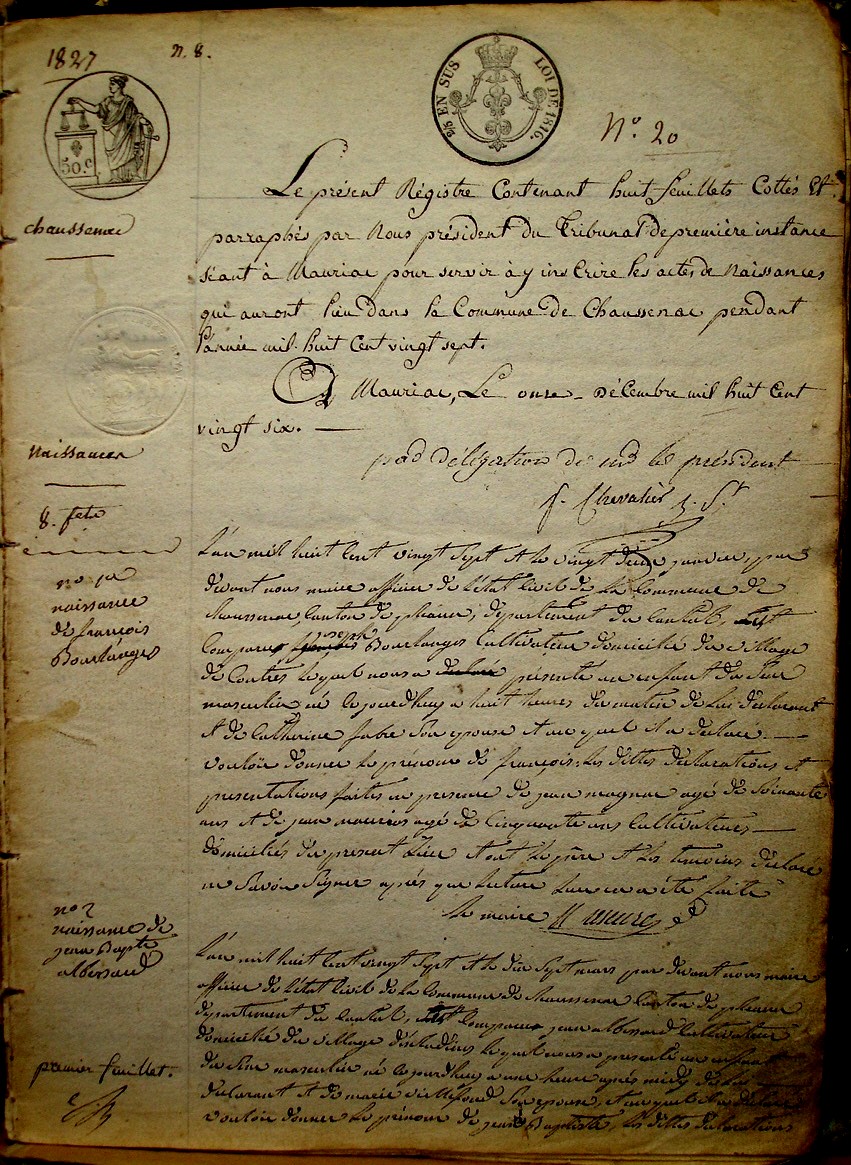 1827
n. 8.
EN SUS LOI DE 1816.
50.c
N.o 20
Le présent Régistre Contenant huit feuillets Cottés Et
parraphés par Nous président du Tribunal de première instance
séant à Mauriac pour servir à y inscrire les actes de Naissances
qui auront lieu dans la Commune de Chaussenac pendant
l'année mil huit Cent vingt sept.
A Mauriac, Le onze Décembre mil huit Cent
vingt six.
par délégation de mr le président
Chevalier j. St
chaussenac
Naissances
8. fets
L'an mil huit Cent vingt Sept Et le vingt deux janvier, par
devant nous maire officier de l'état Civil de la Commune de
Chaussenac Canton de pleaux, département du Cantal, Est
Comparu joseph Bourlanges Cultivateur domicilié du village
de Contres lequel nous a declaré présenté un enfant du Sexe
masculin né cejourdhuy a huit heures du matin de lui declarant
Et de Catherine fabre Son epouse Et au quel il a declaré
vouloir donner le prénom de françois; les dittes declarations Et
presentations faites en presence de jean magnac agé de Soixante
ans Et de jean mauries agé de Cinquante ans Cultivateurs
domiciliés du present Lieu Et ont le père Et les temoins déclaré
ne Savoir Signer après que lecture leur en a été faite
le maire
no 1er
naissance
de françois
Bourlanges
L'an mil huit Cent vingt Sept Et le dix Sept mars par devant nous maire
officier de l'état Civil de la Commune de Chaussenac Canton de pleaux
département du Cantal, Est Comparu jean albessard Cultivateur
domicilié du village lequel nous a presenté un enfant
du Sexe masculin né cejourdhuy a une heure après midy de lui
declarant Et de marie Son epouse, Et au quel il a declaré
vouloir donner le prénom de jean Baptiste, les dittes declarations
no 2
naissance de
jean Bapte
albessard
premier feuillet.